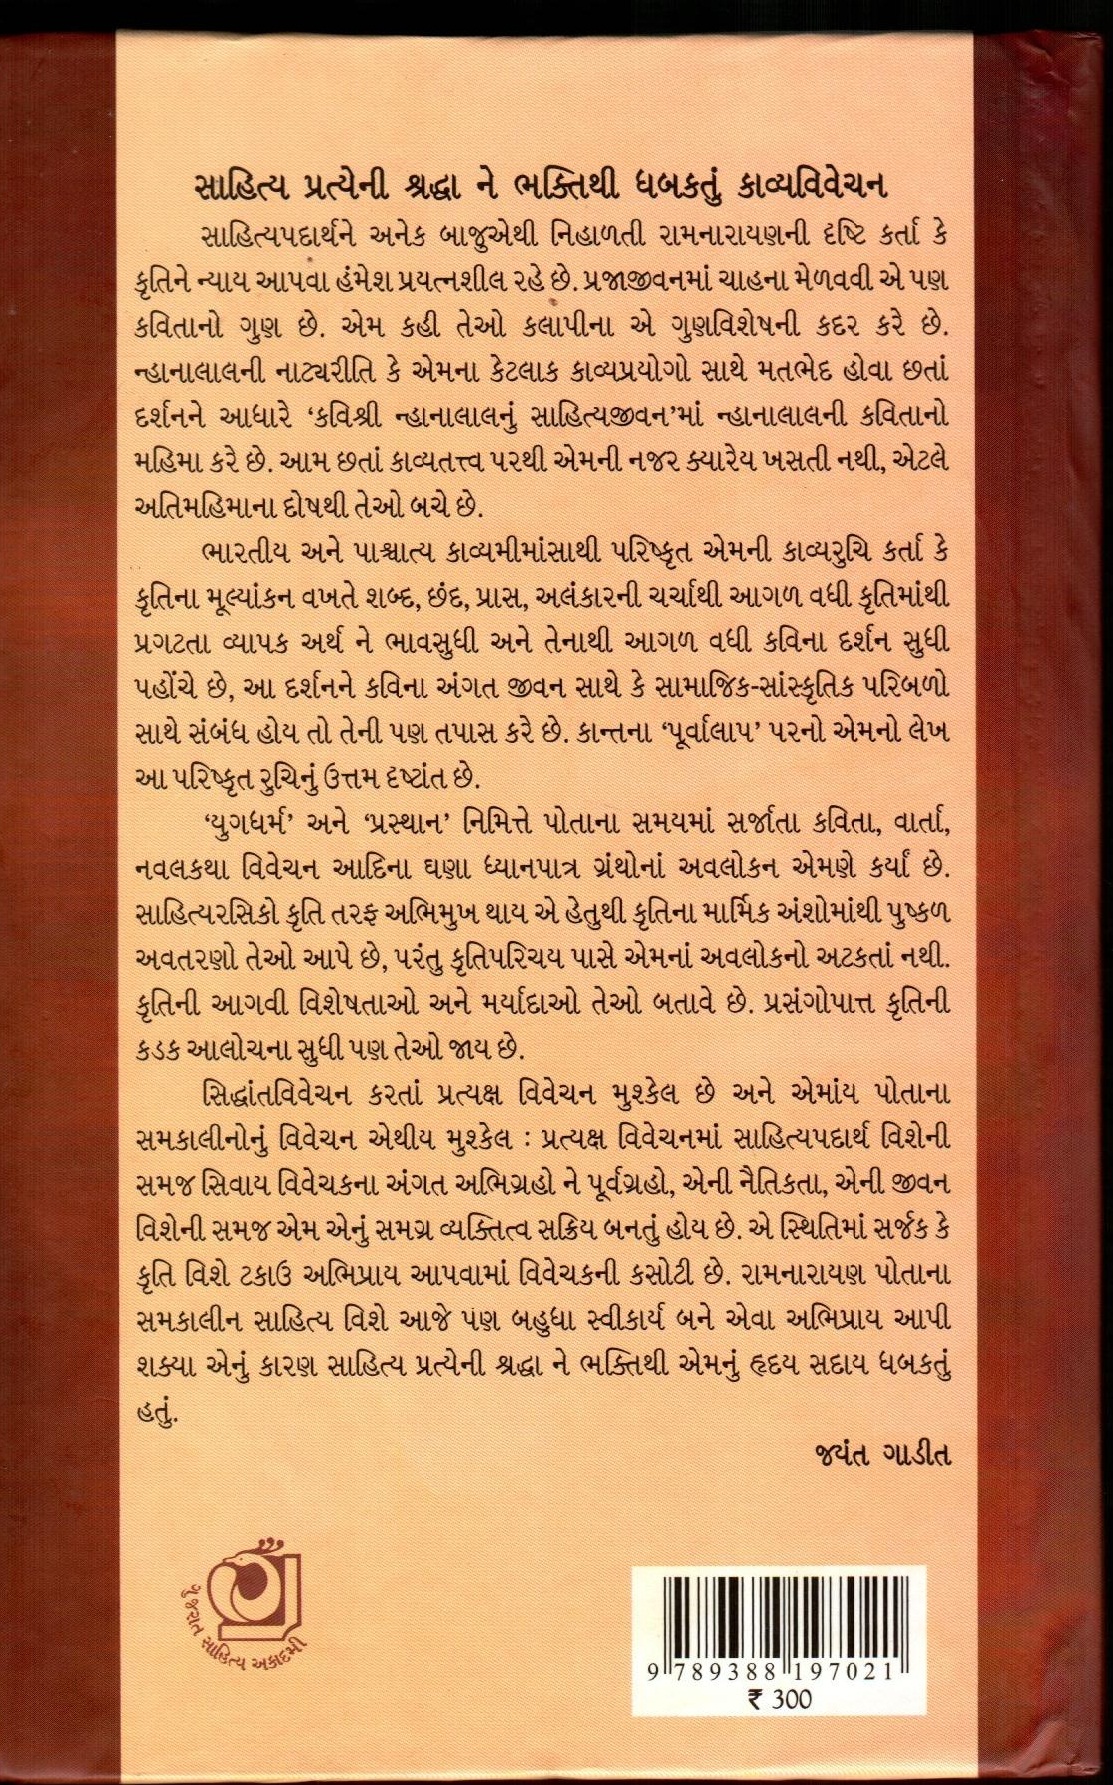 સાહિત્ય પ્રત્યેની શ્રદ્ધા ને ભક્તિથી ધબકતું કાવ્યવિવેચન
સાહિત્યપદાર્થને અનેક બાજુએથી નિહાળતી રામનારાયણની દૃષ્ટિ કર્તા કે
કૃતિને ન્યાય આપવા હંમેશ પ્રયત્નશીલ રહે છે. પ્રજાજીવનમાં ચાહના મેળવવી એ પણ
કવિતાનો ગુણ છે. એમ કહી તેઓ કલાપીના એ ગુણવિશેષની કદર કરે છે.
ન્હાનાલાલની નાટ્યરીતિ કે એમના કેટલાક કાવ્યપ્રયોગો સાથે મતભેદ હોવા છતાં
દર્શનને આધારે ‘કવિશ્રી ન્હાનાલાલનું સાહિત્યજીવન’માં ન્હાનાલાલની કવિતાનો
મહિમા કરે છે. આમ છતાં કાવ્યતત્ત્વ પરથી એમની નજર ક્યારેય ખસતી નથી, એટલે
અતિમહિમાના દોષથી તેઓ બચે છે.
ભારતીય અને પાશ્ચાત્ય કાવ્યમીમાંસાથી પરિષ્કૃત એમની કાવ્યરુચિ કર્તા કે
કૃતિના મૂલ્યાંકન વખતે શબ્દ, છંદ, પ્રાસ, અલંકારની ચર્ચાથી આગળ વધી કૃતિમાંથી
પ્રગટતા વ્યાપક અર્થ ને ભાવસુધી અને તેનાથી આગળ વધી કવિના દર્શન સુધી
પહોંચે છે, આ દર્શનને કવિના અંગત જીવન સાથે કે સામાજિક-સાંસ્કૃતિક પરિબળો
સાથે સંબંધ હોય તો તેની પણ તપાસ કરે છે. કાન્તના ‘પૂર્વાલાપ’ પરનો એમનો લેખ
આ પરિષ્કૃત રુચિનું ઉત્તમ દૃષ્ટાંત છે.
‘યુગધર્મ’ અને ‘પ્રસ્થાન’ નિમિત્તે પોતાના સમયમાં સર્જાતા કવિતા, વાર્તા,
નવલકથા વિવેચન આદિના ઘણા ધ્યાનપાત્ર ગ્રંથોનાં અવલોકન એમણે કર્યાં છે.
સાહિત્યરસિકો કૃતિ તરફ અભિમુખ થાય એ હેતુથી કૃતિના માર્મિક અંશોમાંથી પુષ્કળ
અવતરણો તેઓ આપે છે, પરંતુ કૃતિપરિચય પાસે એમનાં અવલોકનો અટકતાં નથી.
કૃતિની આગવી વિશેષતાઓ અને મર્યાદાઓ તેઓ બતાવે છે. પ્રસંગોપાત્ત કૃતિની
કડક આલોચના સુધી પણ તેઓ જાય છે.
સિદ્ધાંતવિવેચન કરતાં પ્રત્યક્ષ વિવેચન મુશ્કેલ છે અને એમાંય પોતાના
સમકાલીનોનું વિવેચન એથીય મુશ્કેલ : પ્રત્યક્ષ વિવેચનમાં સાહિત્યપદાર્થ વિશેની
સમજ સિવાય વિવેચકના અંગત અભિગ્રહો ને પૂર્વગ્રહો, એની નૈતિકતા, એની જીવન
વિશેની સમજ એમ એનું સમગ્ર વ્યક્તિત્વ સક્રિય બનતું હોય છે. એ સ્થિતિમાં સર્જક કે
કૃતિ વિશે ટકાઉ અભિપ્રાય આપવામાં વિવેચકની કસોટી છે. રામનારાયણ પોતાના
સમકાલીન સાહિત્ય વિશે આજે પણ બહુધા સ્વીકાર્ય બને એવા અભિપ્રાય આપી
શક્યા એનું કારણ સાહિત્ય પ્રત્યેની શ્રદ્ધા ને ભક્તિથી એમનું હૃદય સદાય ધબકતું
હતું.
જયંત ગાડીત
ગુજરાત સાહિત્ય અકાદમી
9 789388 197021
₹ 300